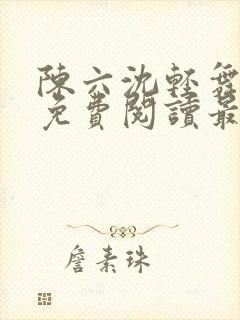 陳六沈輕舞
免費閱讀最
詹素珠